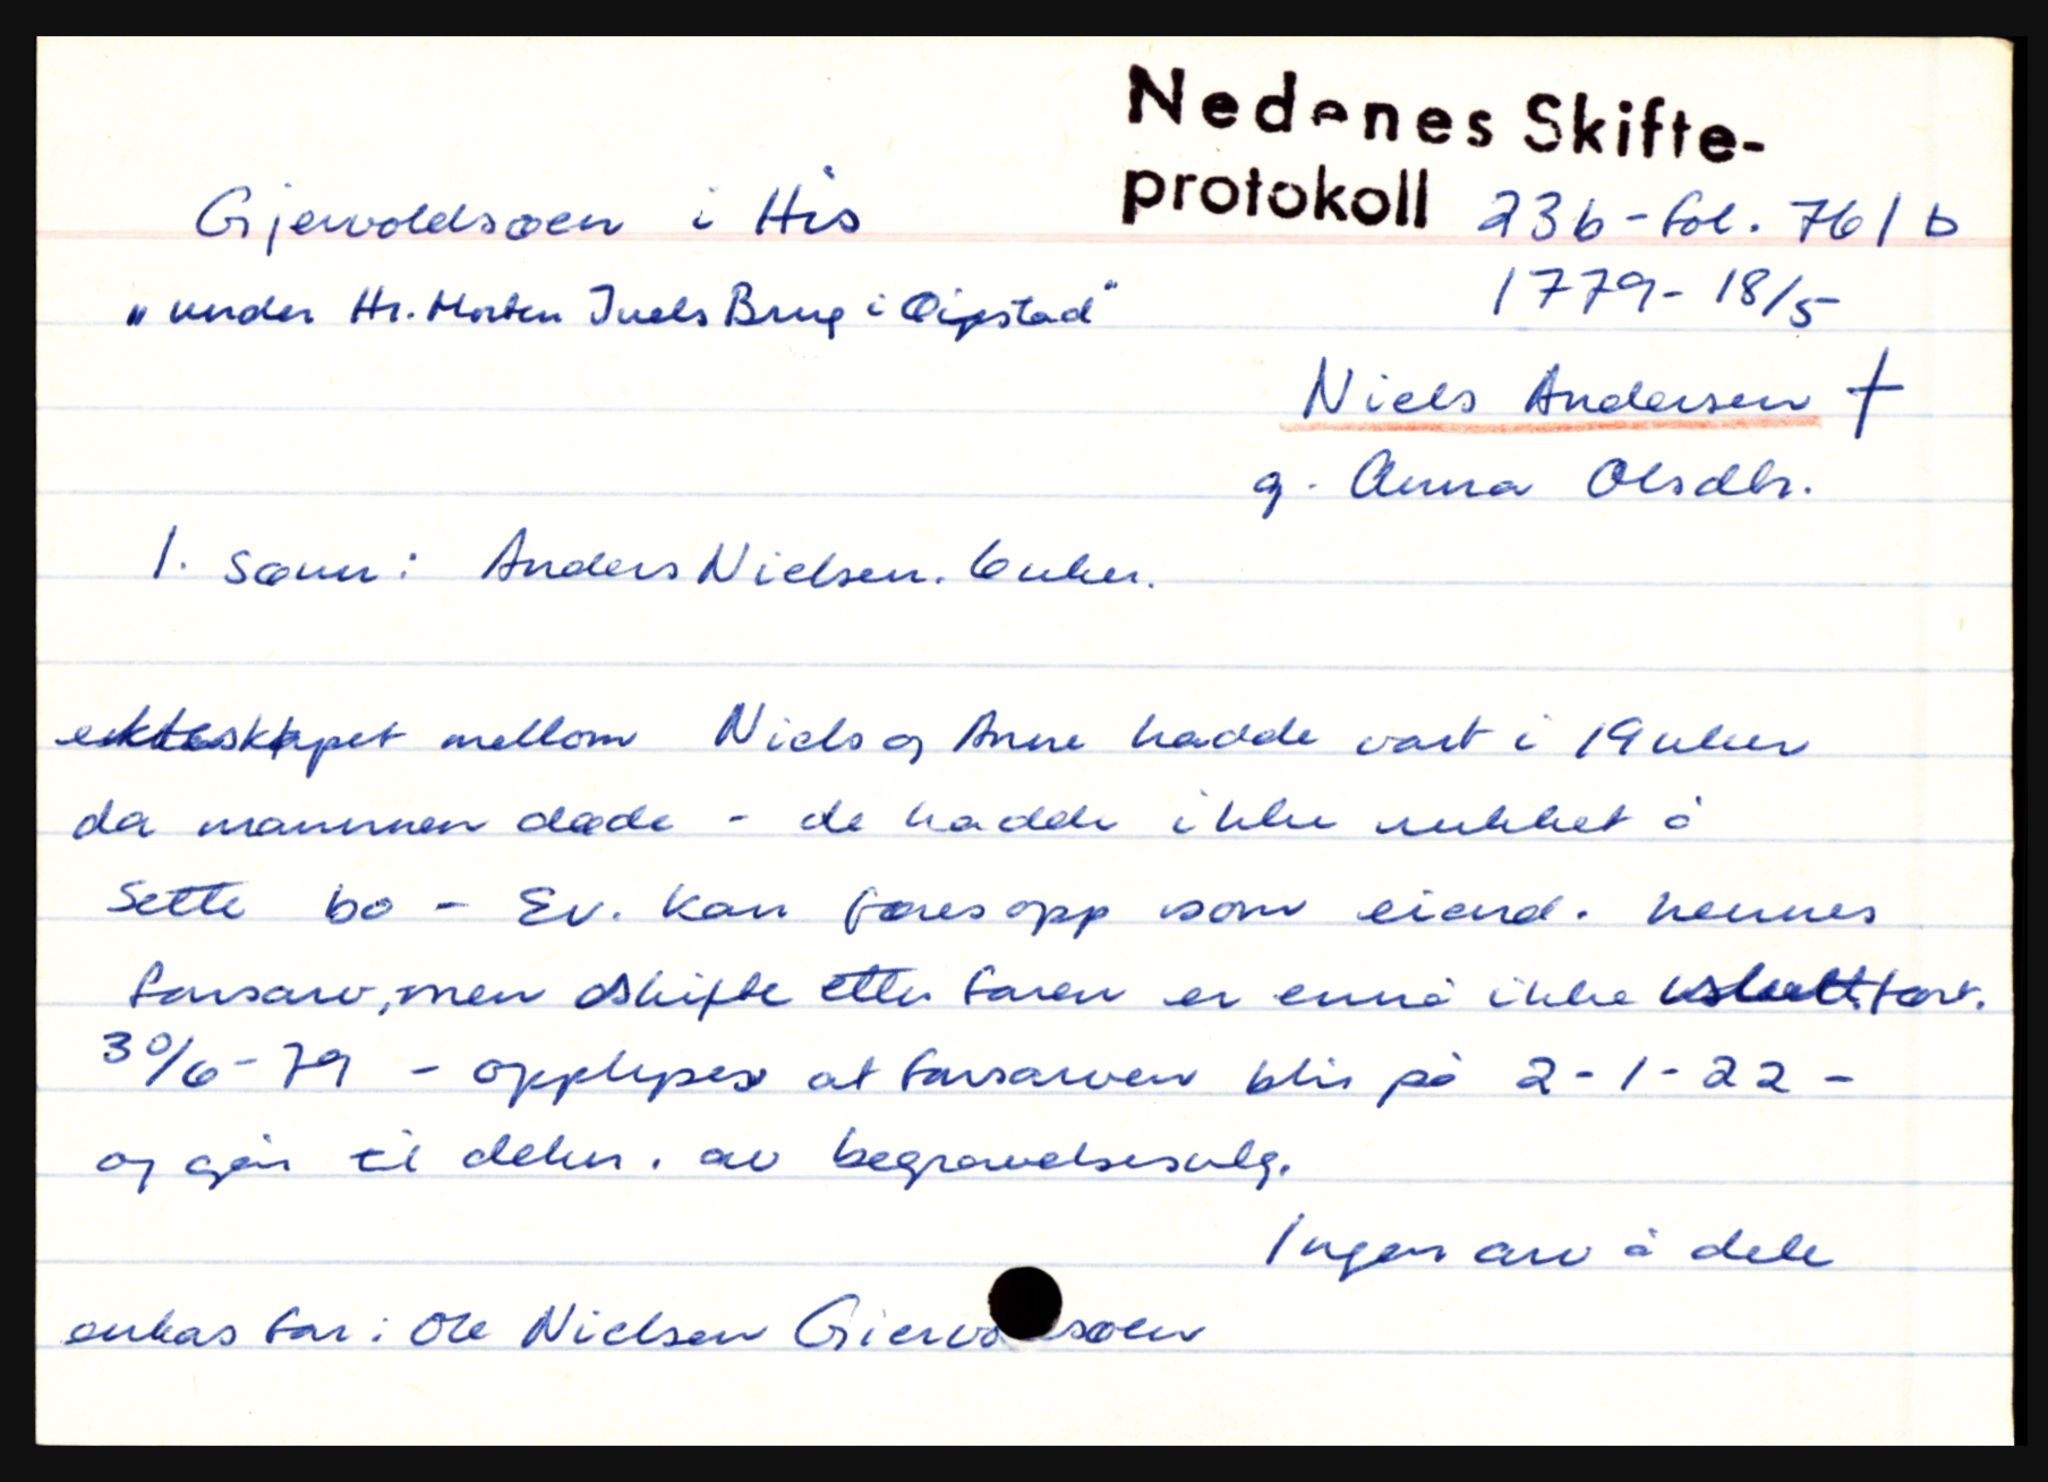 Nedenes Skifte-
protokoll 23b - fol. 761 b
Gjervoldsøen i His
1779 - 18/5
"under Hr. Morten Juels Brug i Øigstad"
Niels Andersen †
g. Anna Olsdtr.
1. sønn: Anders Nielsen. 6 uker.
ekteskapet mellom Niels og Anne hadde vart i 19 uker
da mannen døde - de hadde ikke rukket å
sette bo - Ev. kan føres opp som eiend. hennes
farsarv, men skifte etter faren er ennå ikke sluttført.
30/6 - 79 - opplyses at farsarven blir på 2-1-22 -
og går til dekn. av begravelsesutg.
Ingen arv å dele
enkas far: Ole Nielsen Giervoldsøen